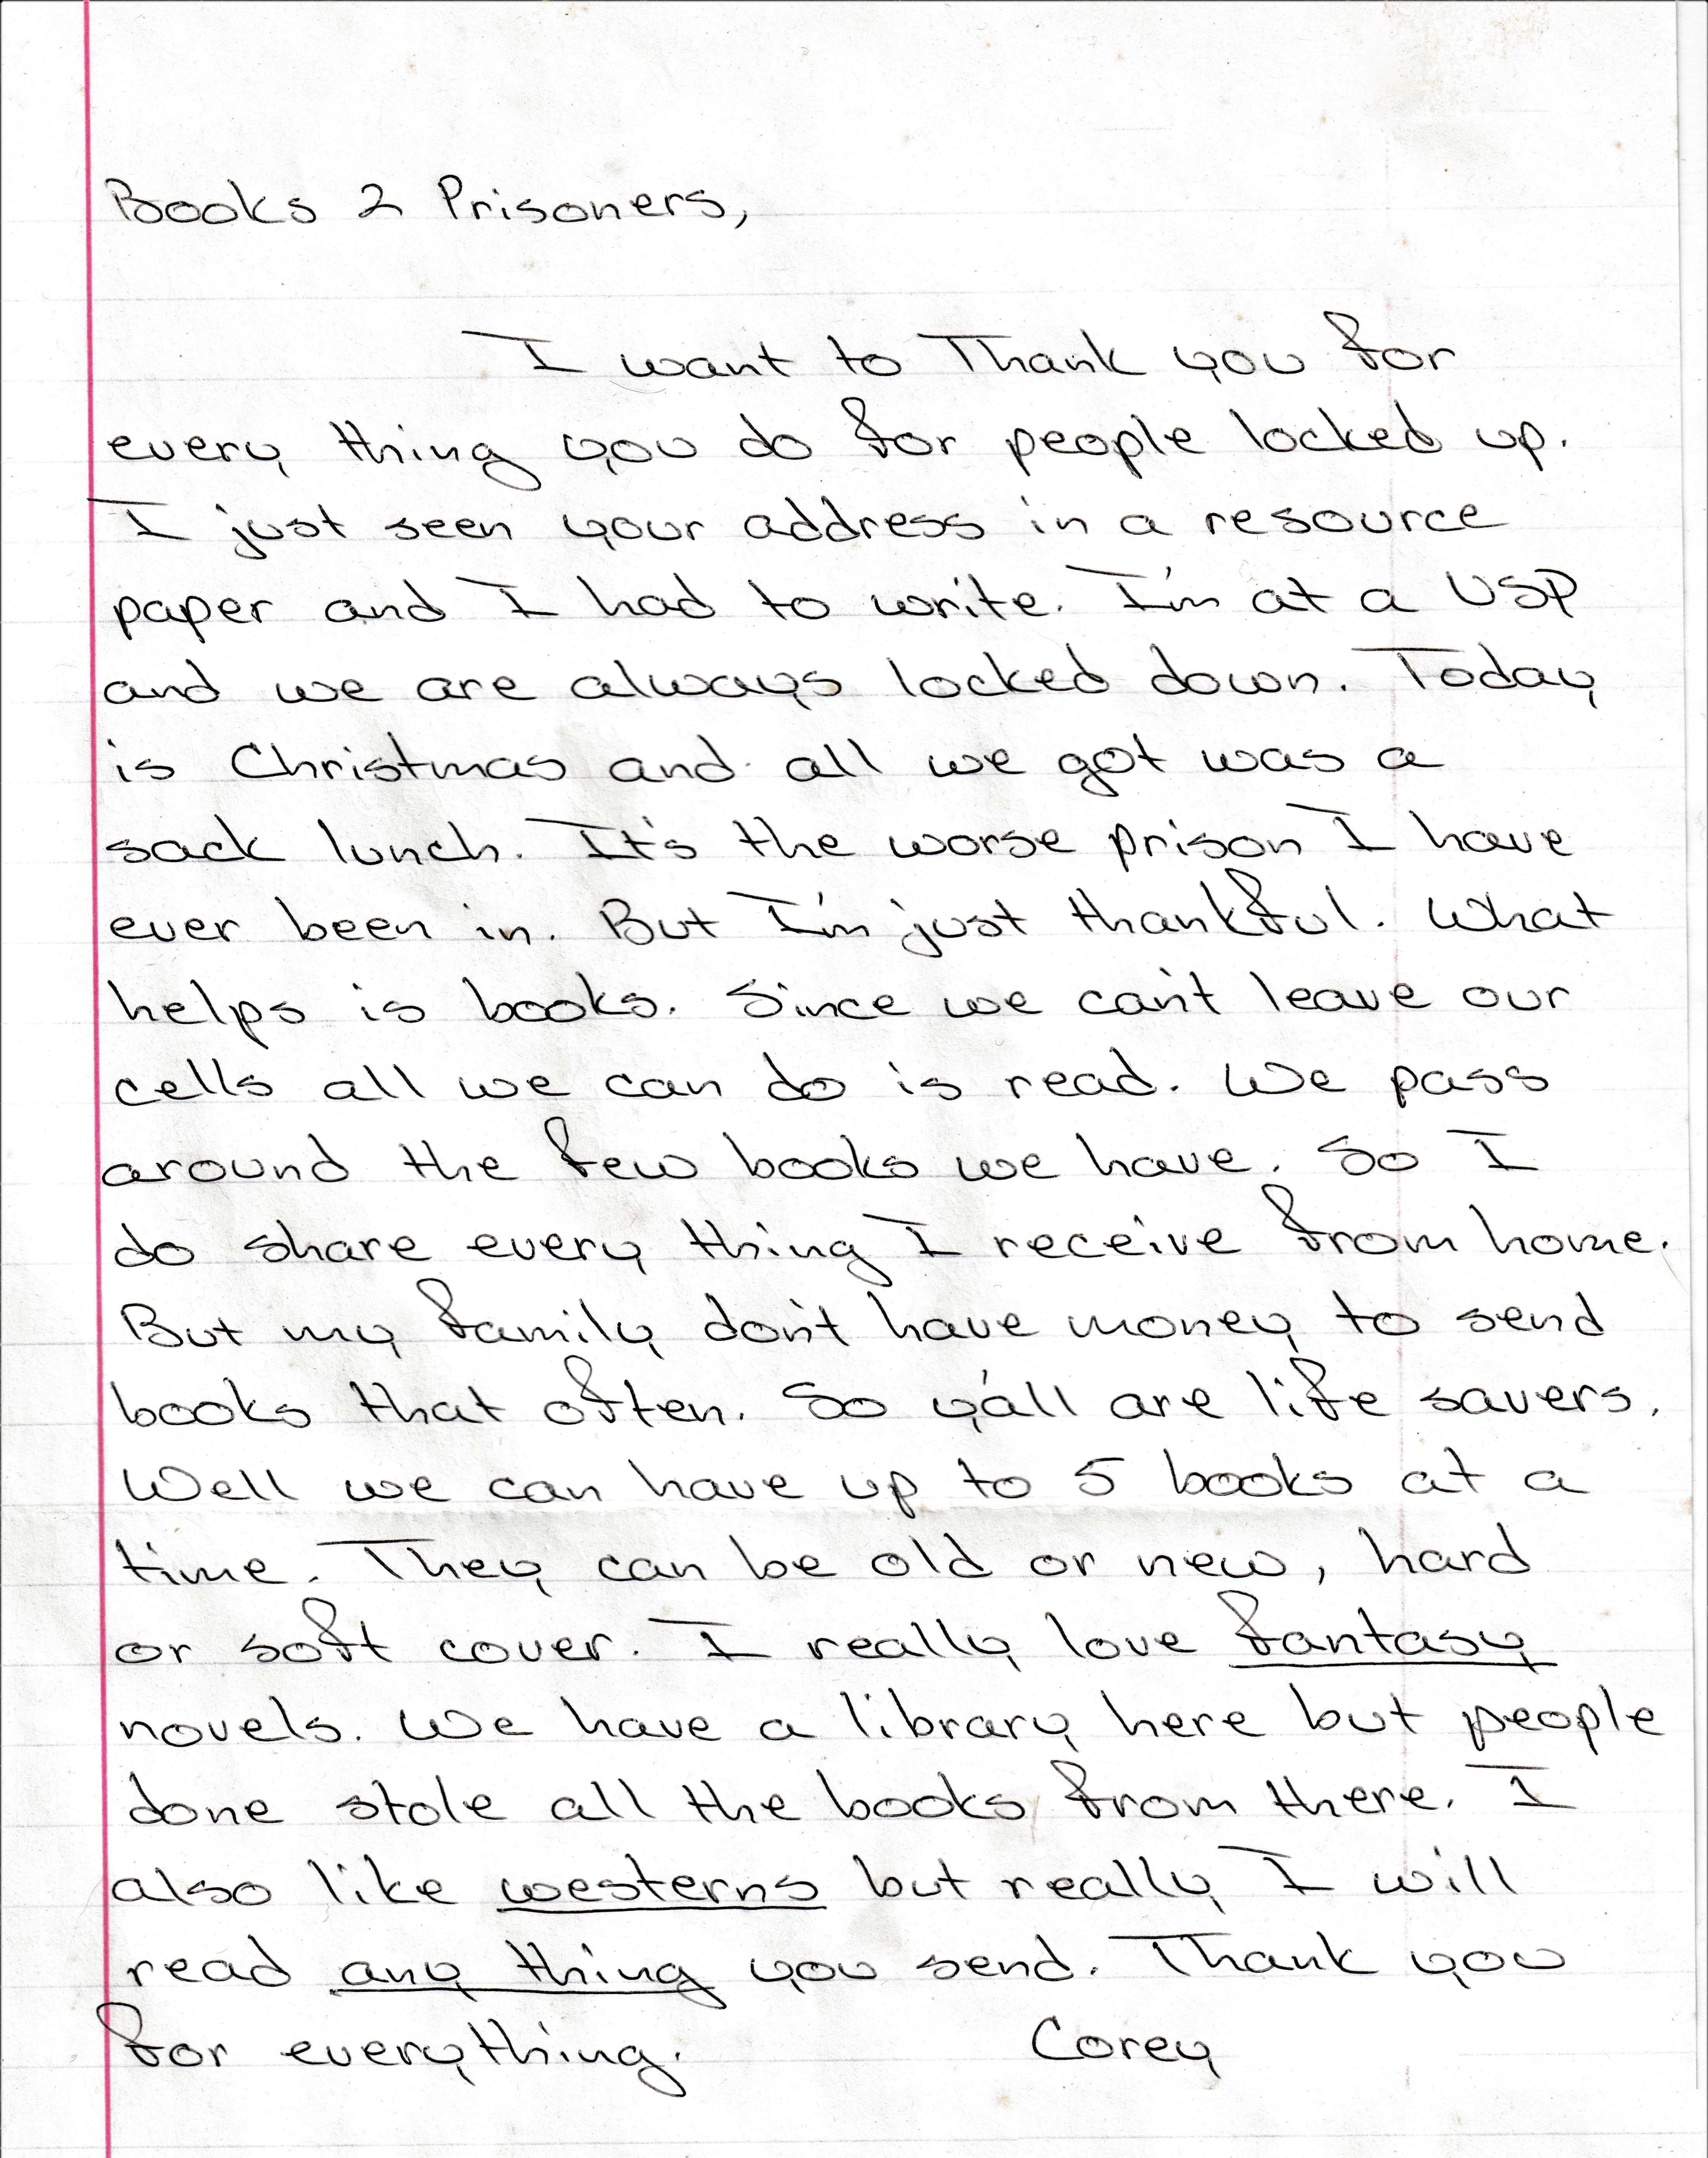 Books 2 Prisoners,
I want to Thank you for
every thing you do for people locked up.
I just seen your address in a resource
paper and I had to write. I'm at a USP
and we are always locked down. Today
is Christmas and all we got was a
sack lunch. It's the worse prison I have
ever been in. But I'm just thankful. What
helps is books. Since we can't leave our
cells all we can do is read. We pass
around the few books we have. So I
do share every thing I receive from home.
But my family don't have money to send
books that often. So y'all are life savers.
Well we can have up to 5 books at a
time. They can be old or new, hard
or soft cover. I really love fantasy
novels. We have a library here but people
done stole all the books from there. I
also like westerns but really I will
read any thing you send. Thank you
for everything. Corey